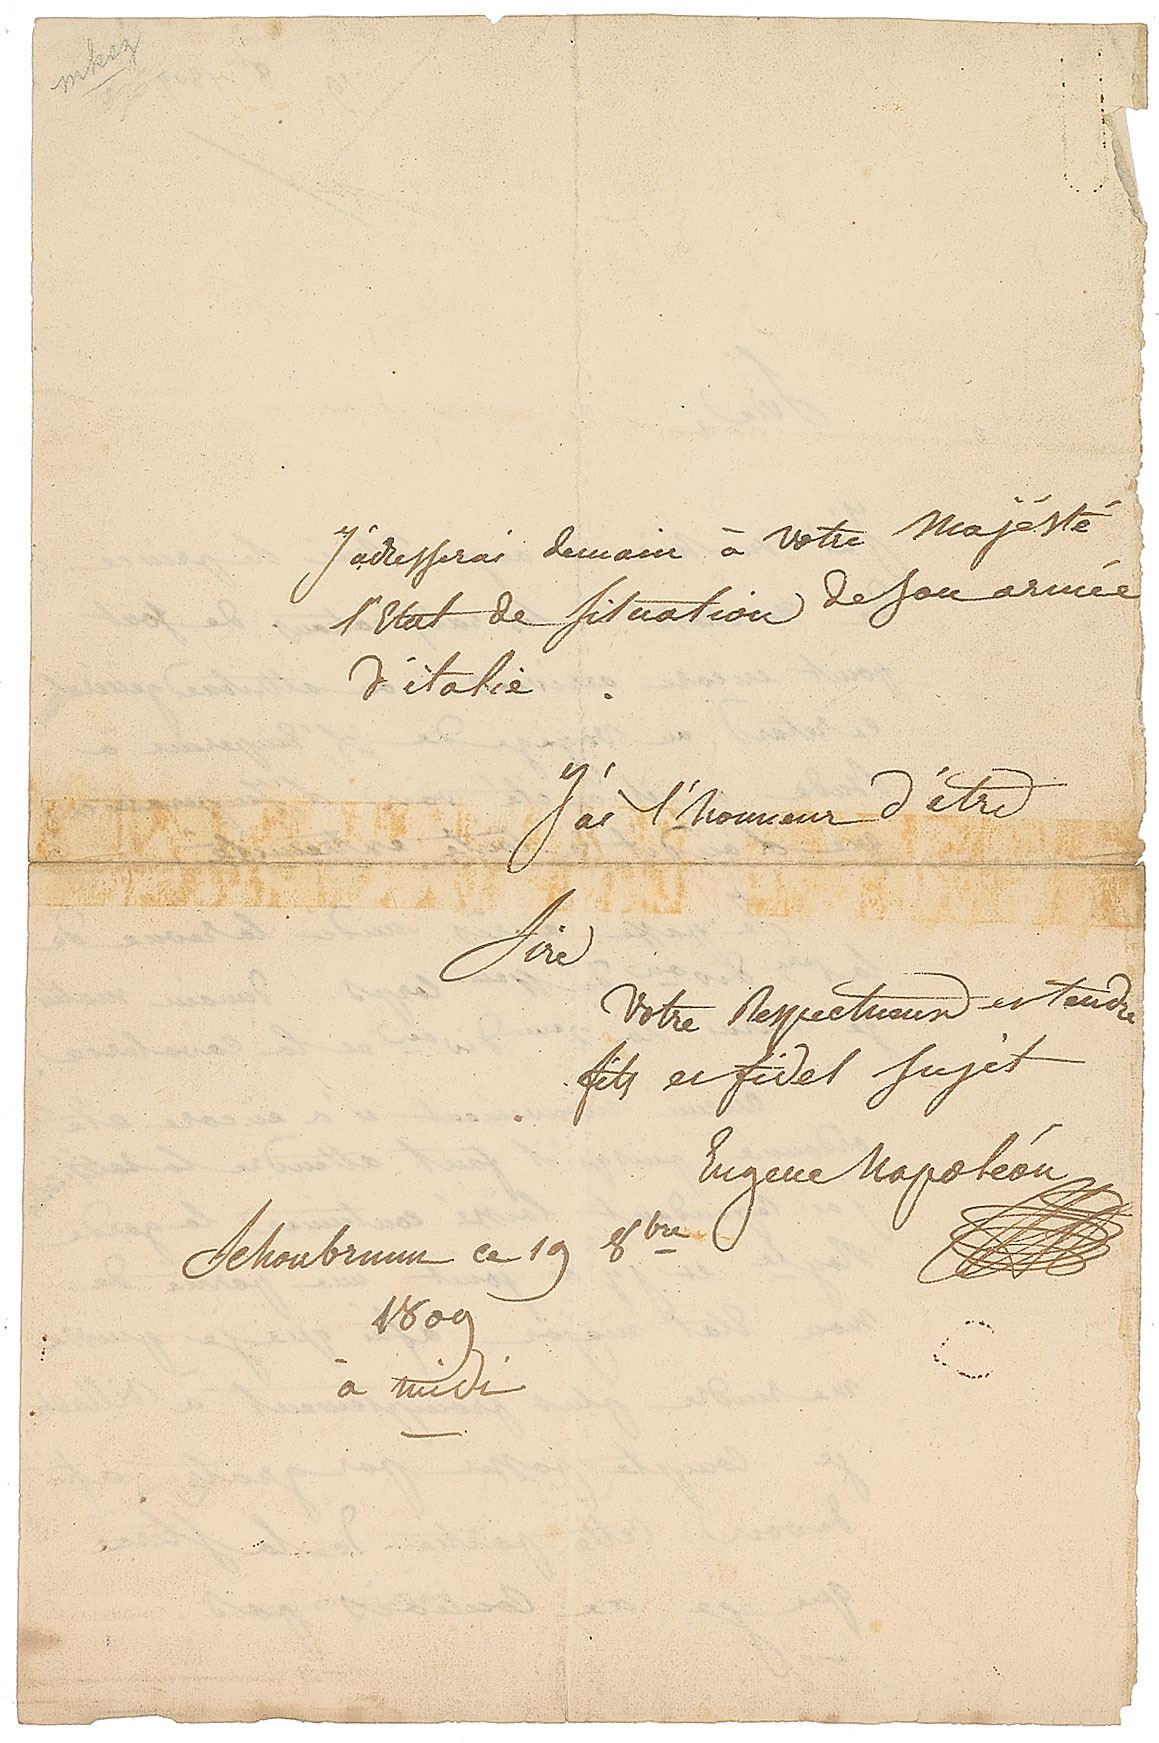 J'adresserai demain à Votre Majésté
l'Etat de situation de son armée
d'italie.
J'ai l'honneur d'être
Sire
Votre Respectueux et tendre
fils et fidel sujet
Eugene Napoléon
Schonbrunn ce 19 8bre
1809
à midi